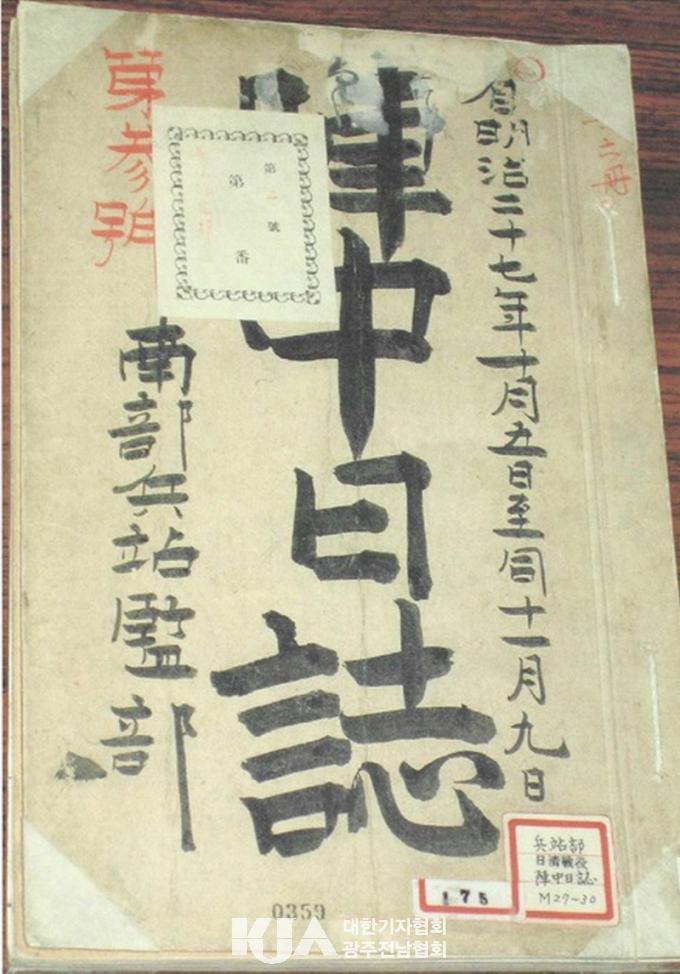 六冊
自明治二十七年十月五日至同十一月九日
陣中日誌
第参號
南部兵站監部
第一號
第 番
兵站部
日清戦役
陣中日誌
M27~30
175
0359
KJA 대한기자협회
광주전남협회